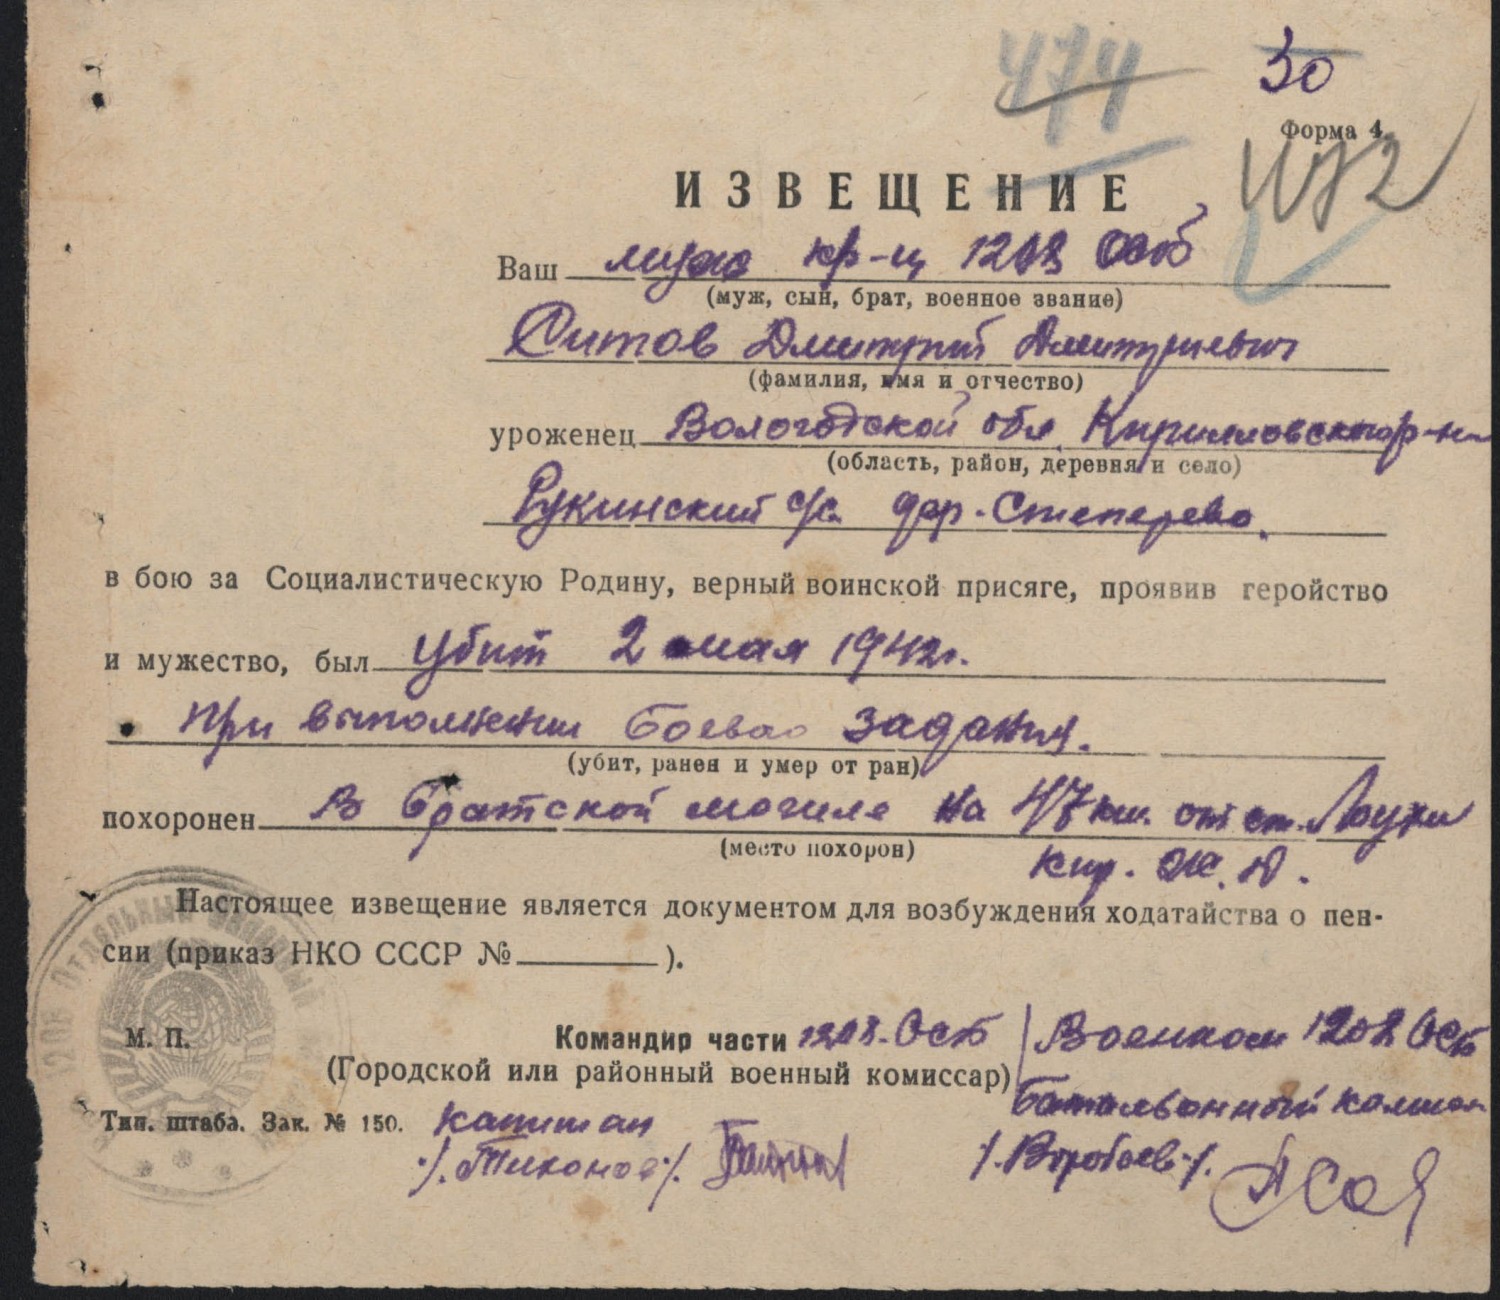 474
30
Форма 4
1172
ИЗВЕЩЕНИЕ
Ваш муж кр-ц 1208 ОСБ
(муж, сын, брат, военное звание)
Ситов Дмитрий Дмитриевич
(фамилия, имя и отчество)
уроженец Вологодской обл. Кирилловского р-на
(область, район, деревня и село)
Рукинский с/с. дер. Степерево.
в бою за Социалистическую Родину, верный воинской присяге, проявив геройство
и мужество, был убит 2 мая 1942г.
при выполнении боевао задания.
(убит, ранен и умер от ран)
похоронен в братской могиле на 47 км. от ст. Лоухи
(место похорон)
кир. ж. д.
Настоящее извещение является документом для возбуждения ходатайства о пен-
сии (приказ НКО СССР №______).
М. П.
Командир части 1208. ОСБ
Военком 1208 ОСБ
(Городской или районный военный комиссар)
Батальонный комиссар
Тип. штаба. Зак. № 150.
капитан
/.Тихонов/.
/.Воробьев/.